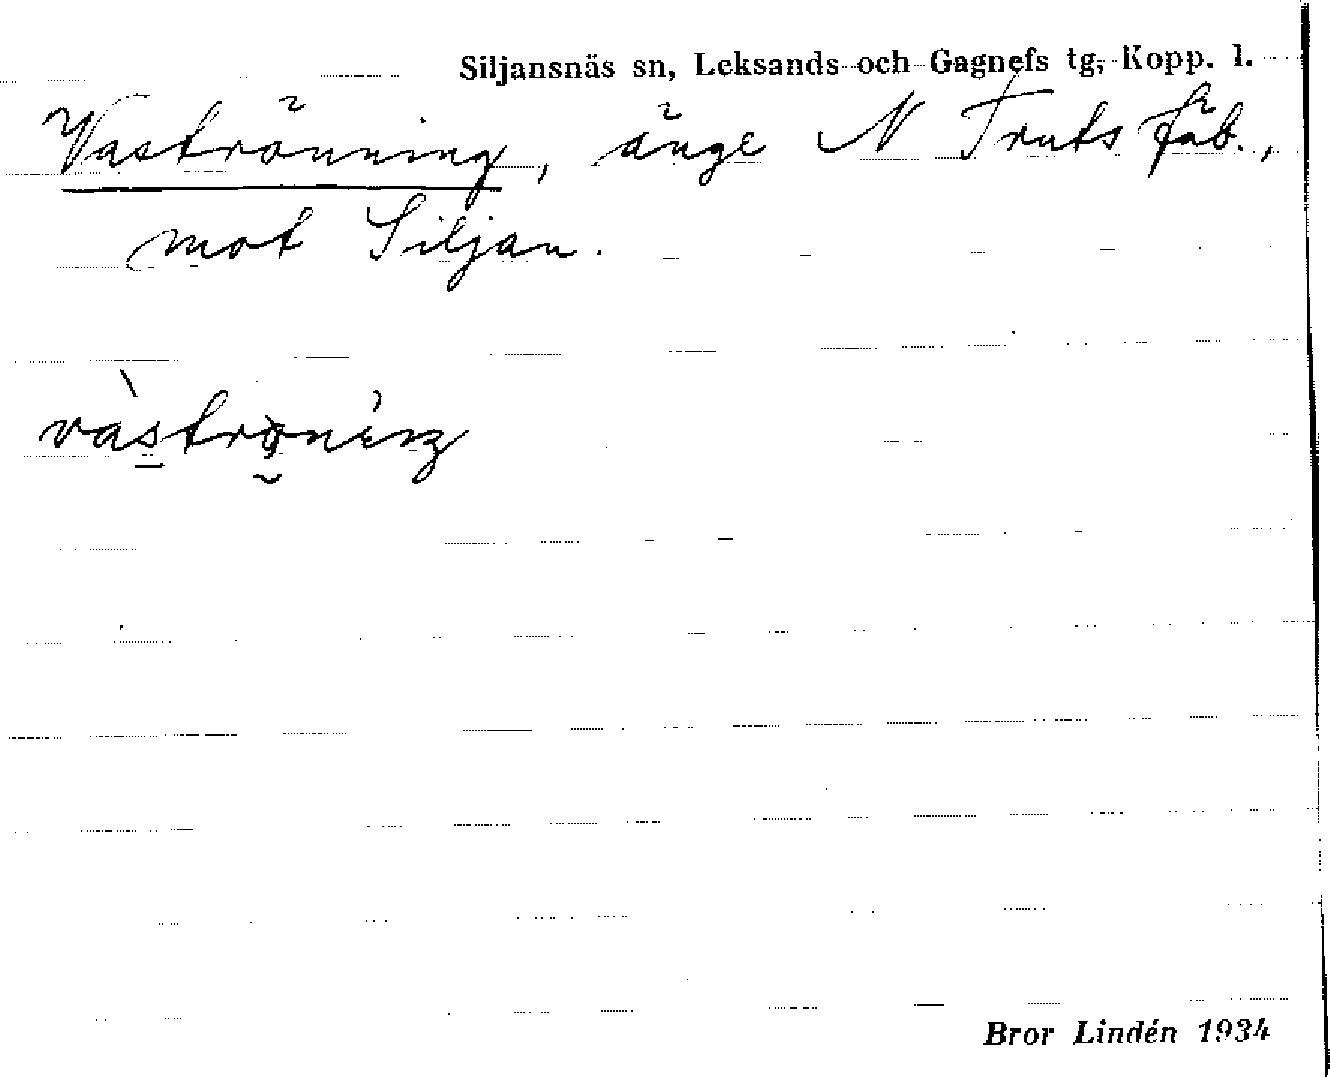 Siljansnäs sn, Leksands och Gagnefs tg, Kopp. l.
Vaströnning, änge N Truts fäb.,
mot Siljan.
Bror Lindén 1934